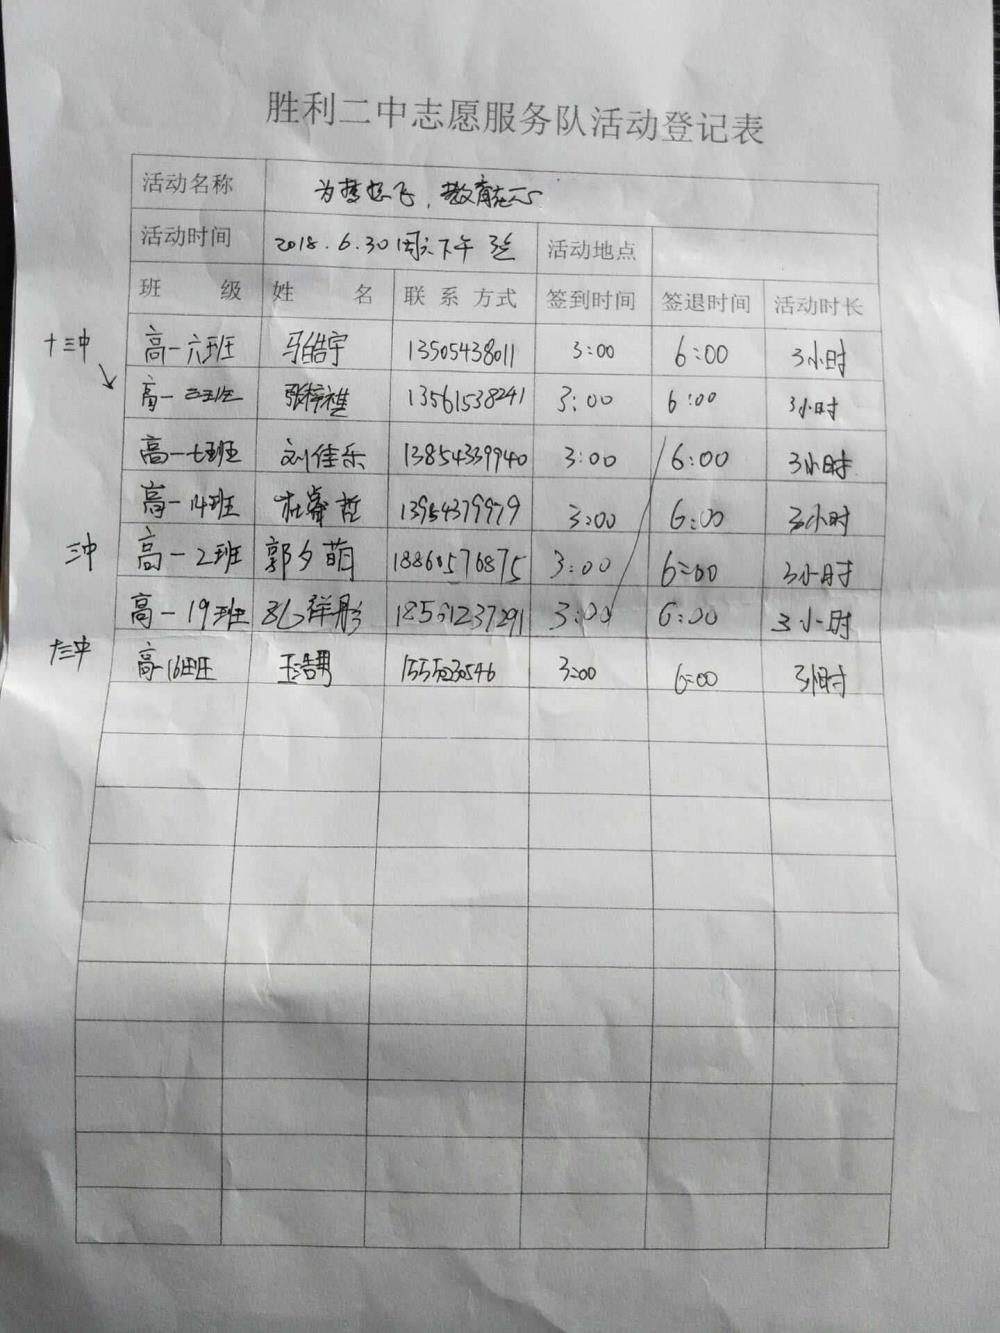 胜利二中志愿服务队活动登记表
活动名称 为梦想飞，教育在心
活动时间 2018.6.30 周六下午 3点 活动地点
班 级 姓 名 联 系 方式 签到时间 签退时间 活动时长
十三中 高一六班 马皓宇 13505438011 3:00 6:00 3小时
高一三班 张梓祺 13561538241 3:00 6:00 3小时
高一七班 刘佳乐 13854339940 3:00 6:00 3小时
高一14班 杜睿哲 13954379979 3:00 6:00 3小时
三中 高一2班 郭夕萌 18860576875 3:00 6:00 3小时
高一19班 孔祥彤 18561237291 3:00 6:00 3小时
十三中 高一16班 王浩男 3:00 6:00 3小时